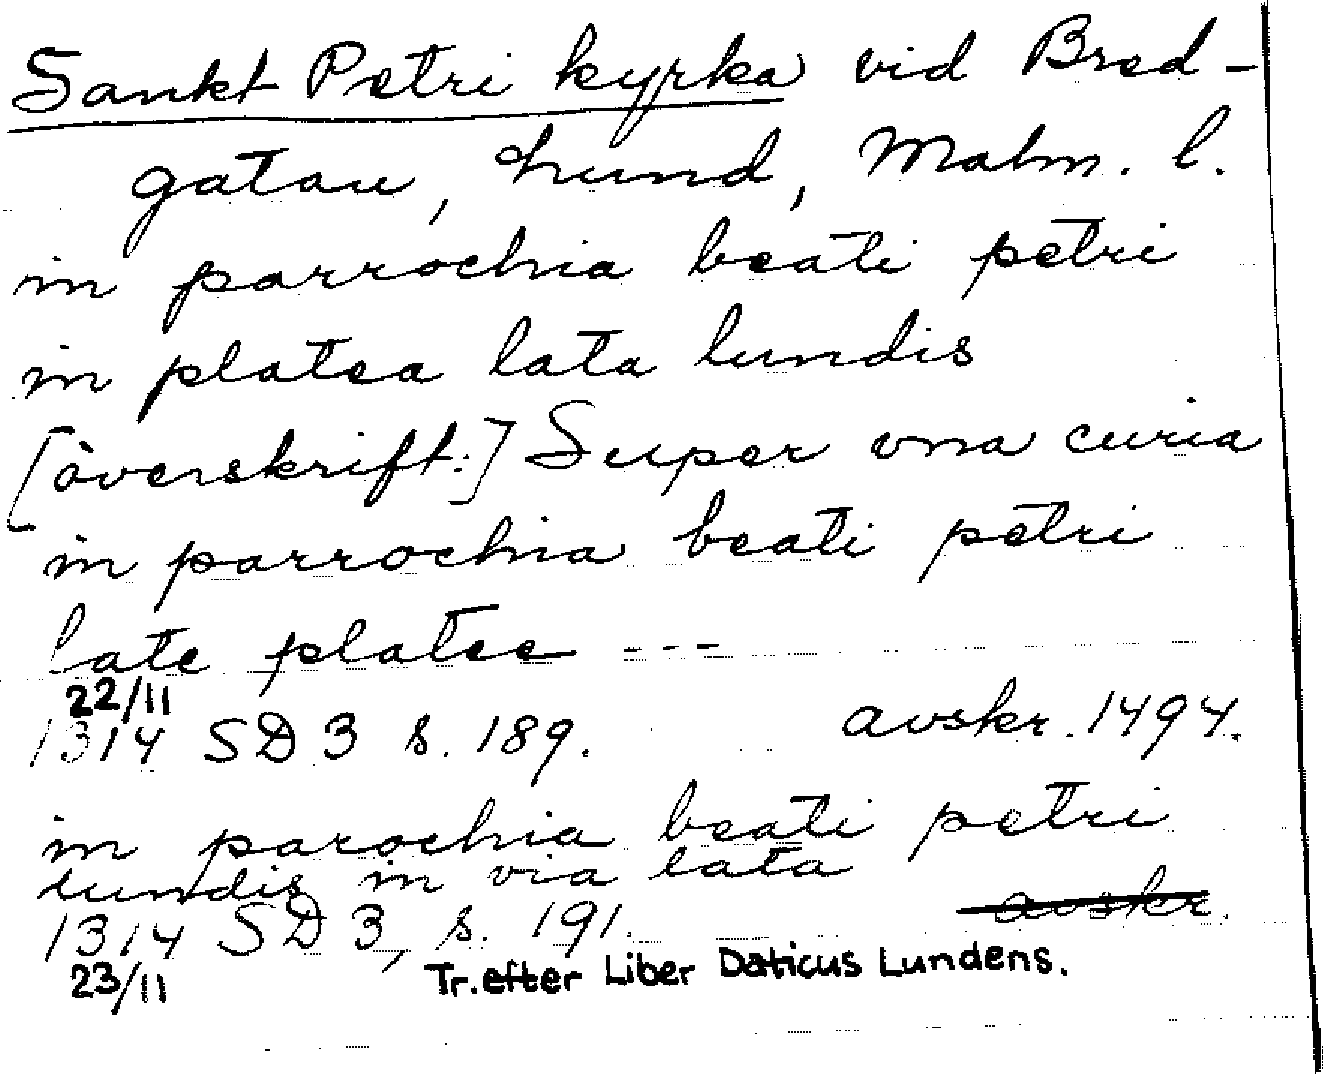 Sankt Petri kyrka vid Bred-
gatan, Lund, Malm. l.
in parrochia beati petri
in platea lata lundis
[överskrift:] Super vna curia
in parrochia beati petri
late platee ---
22/11
1314 SD 3 s. 189. avskr. 1494.
in parochia beati petri
lundis in via lata
1314 SD 3, s. 191. avskr.
23/11 Tr. efter Liber Daticus Lundens.